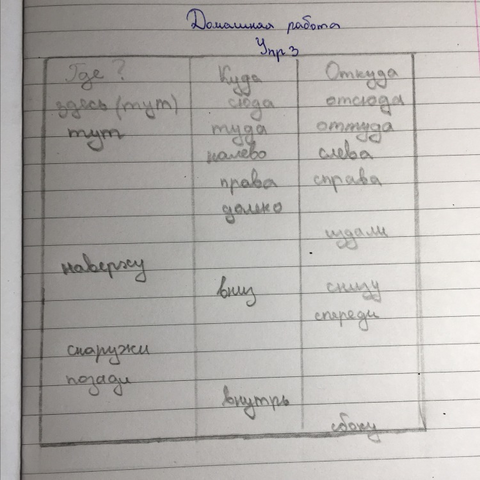 Домашняя работа
Упр 3
Где? Куда Откуда
здесь (тут) сюда отсюда
тут туда оттуда
налево слева
права справа
далько
издали
наверху
вниз снизу
спереди
снаружи
позади
внутрь
сбоку